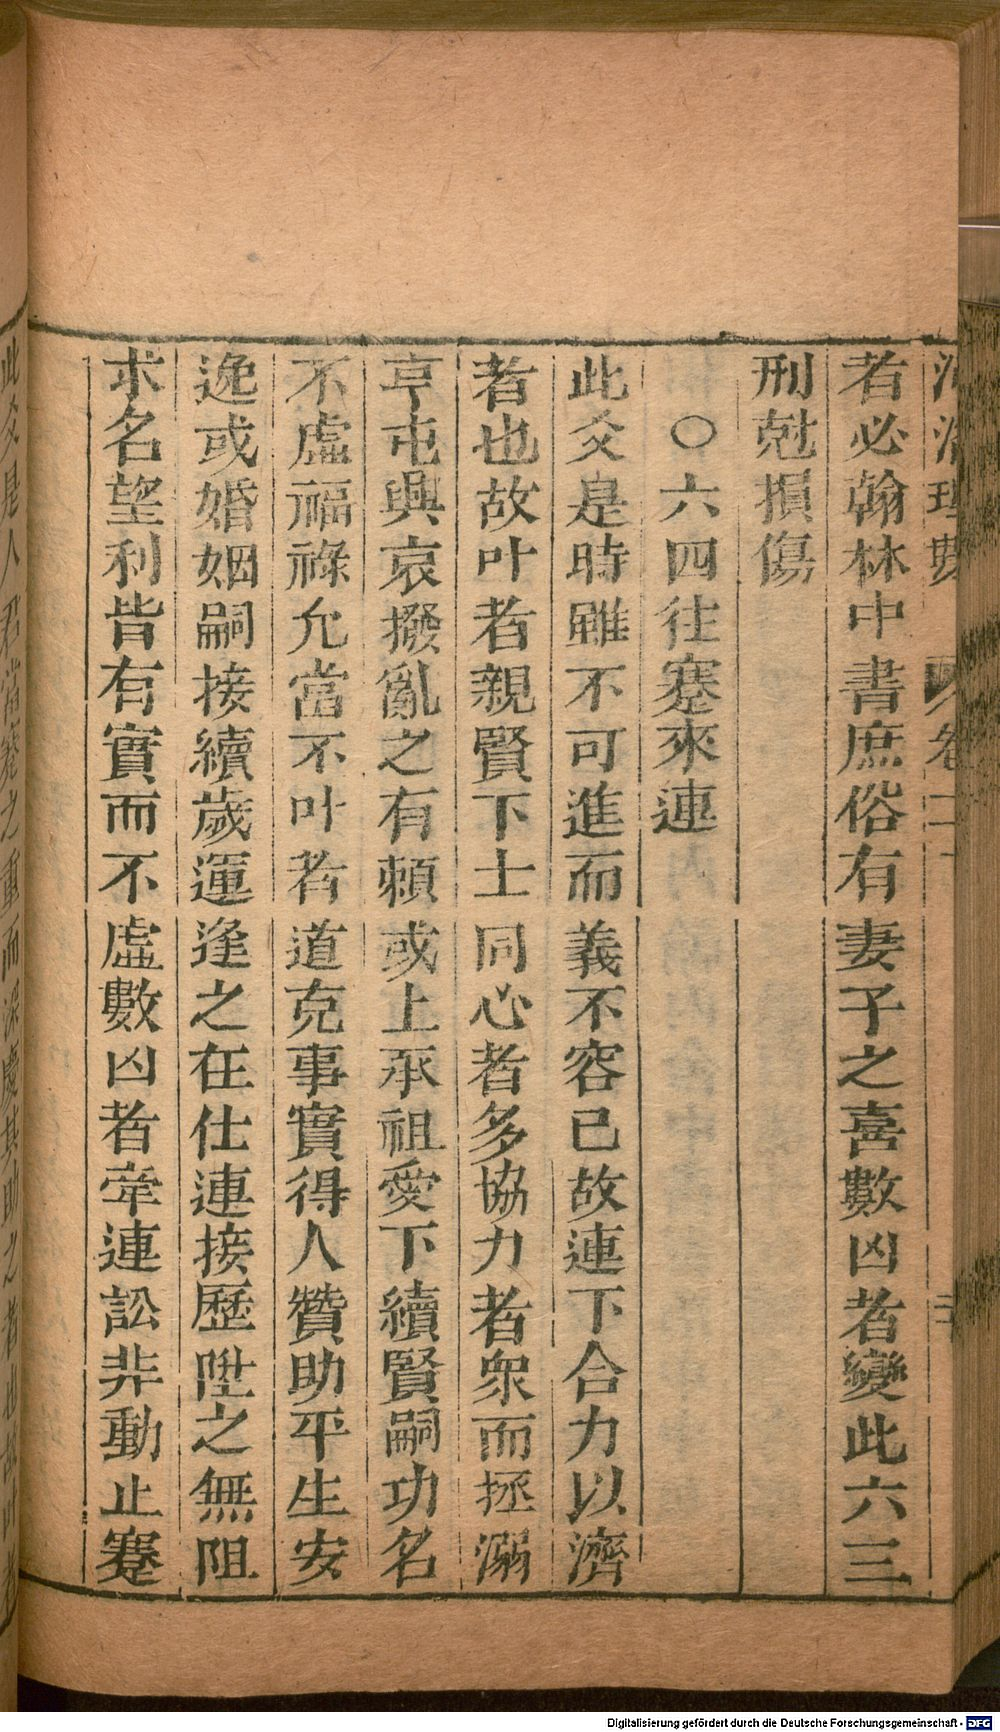 河洛理數 卷二 二十
者必翰林中書庶俗有妻子之喜數凶者變此六三
刑尅損傷
○六四往蹇來連
此爻是時雖不可進而義不容已故連下合力以濟
者也故叶者親賢下士同心者多協力者衆而拯溺
亨屯興哀撥亂之有賴或上承祖愛下續賢嗣功名
不虛福祿允當不叶者道克事實得人贊助平生安
逸或婚姻嗣接續歲運逢之在仕連接歷陞之無阻
求名望利皆有實而不虛數凶者牽連訟非動止蹇
此爻是人君當蹇之重而深慶其助之者也故叶者
Digitalisierung gefördert durch die Deutsche Forschungsgemeinschaft - DFG